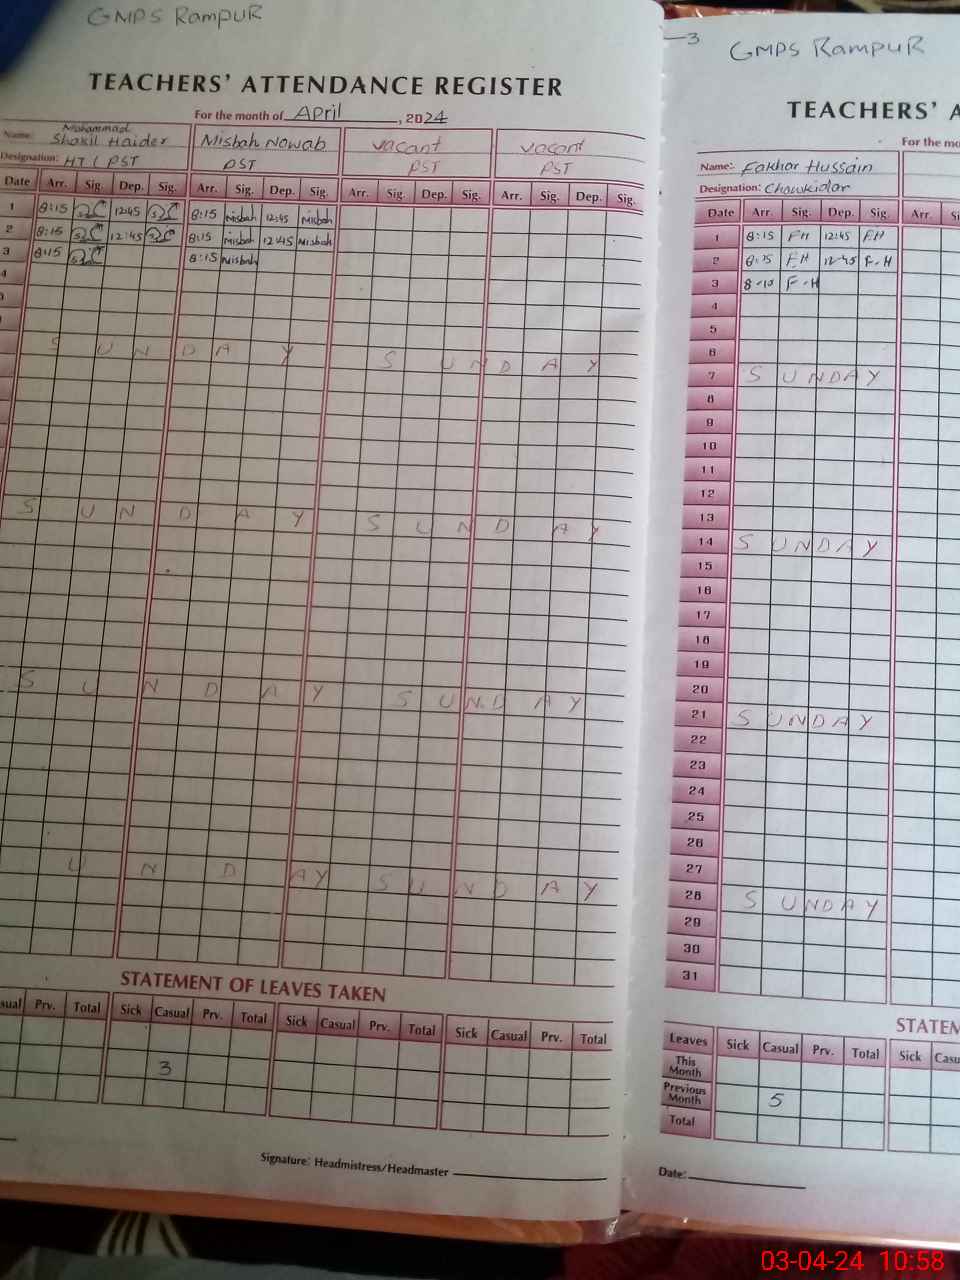 GMPS Rampur
TEACHERS' ATTENDANCE REGISTER
For the month of April, 2024
Name: Mohammad Shakil Haider
Misbah Nowab
vacant
vacant
Designation: HT / PST
PST
PST
PST
Date Arr. Sig. Dep. Sig. Arr. Sig. Dep. Sig. Arr. Sig. Dep. Sig. Arr. Sig. Dep. Sig.
1 8:15 12:45 8:15 Misbah 12:45 Misbah
2 8:15 12:45 8:15 Misbah 12:45 Misbah
3 8:15 8:15 Misbah
4
SUNDAY SUNDAY
SUNDAY SUNDAY
SUNDAY SUNDAY
UNDAY SUNDAY
STATEMENT OF LEAVES TAKEN
sual Prv. Total Sick Casual Prv. Total Sick Casual Prv. Total Sick Casual Prv. Total
3
Signature: Headmistress/Headmaster
3
GMPS Rampur
TEACHERS' A
For the mo
Name: Fakhar Hussain
Designation: Chowkidar
Date Arr. Sig. Dep. Sig. Arr. Si
1 8:15 FH 12:45 F.H
2 8:15 F.H 12:45 F.H
3 8-10 F-H
4
5
6
7 SUNDAY
8
9
10
11
12
13
14 SUNDAY
15
16
17
18
19
20
21 SUNDAY
22
23
24
25
26
27
28 SUNDAY
29
30
31
STATEM
Leaves Sick Casual Prv. Total Sick Casu
This Month
Previous Month 5
Total
Date:
03-04-24 10:58